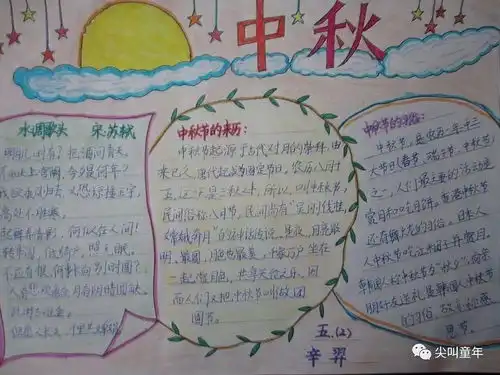 中秋
水调歌头 宋.苏轼
明月几时有?把酒问青天。
不知天上宫阙,今夕是何年?
我欲乘风归去,又恐琼楼玉宇,
高处不胜寒。
起舞弄清影,何似在人间!
转朱阁,低绮户,照无眠。
不应有恨,何事长向别时圆?
人有悲欢离合,月有阴晴圆缺,
此事古难全。
但愿人长久,千里共婵娟
中秋节的来历:
中秋节起源于古代对月的崇拜,由
来已久。唐代起成为固定节日。农历八月十
五,这一天是三秋之中,所以,叫中秋节。
民间俗称八月节。民间尚有
“嫦娥奔月”的神话传说。是夜,月亮最
明、最圆,月色也最美,千家万户坐在
一起赏月色,共享天伦之乐,因
而人们又把中秋节叫做团
圆节。
中秋节的习俗:
中秋节,是农历一年三
大节日(春节、端午节、中秋节)
之一,人们最主要的活动是
赏月和吃月饼。香港中秋节
还有舞火龙的习俗。日本人
人中秋节吃江米团子并赏月。
韩国人称中秋节为“秋夕”,向亲
朋好友送礼是韩国人中秋节
的习俗,故又称感
恩节。
五.(2)
辛羿
尖叫童年